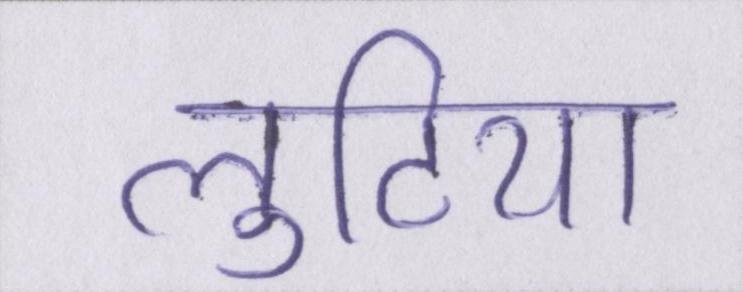 लुटिया